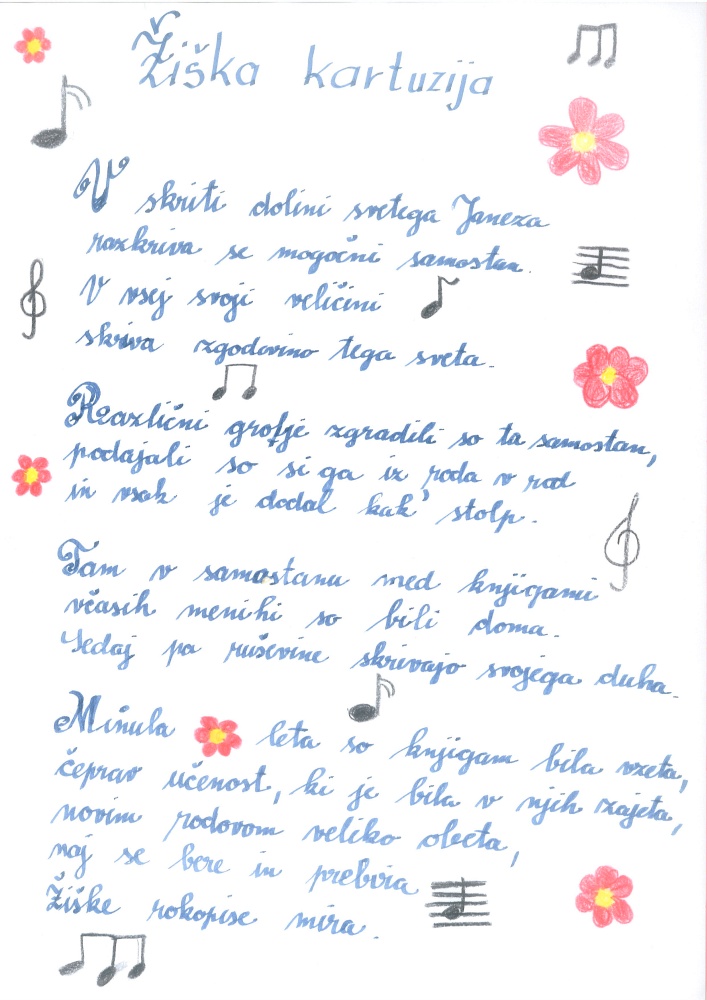 Žiška kartuzija
V skriti dolini svetega Janeza
razkriva se mogočni samostan.
V vsej svoji veličini
skriva zgodovino tega sveta.
Raazlični grofje zgradili so ta samostan,
podajali so si ga iz roda v rod
in vsak je dodal kak' stolp.
Tam v samostanu med knjigami
včasih menihi so bili doma.
Sedaj pa ruševine skrivajo svojega duha.
Minula leta so knjigam bila vzeta,
čeprav učenost, ki je bila v njih zajeta,
novim rodovom veliko obeta,
naj se bere in prebira
Žiške rokopise mira.